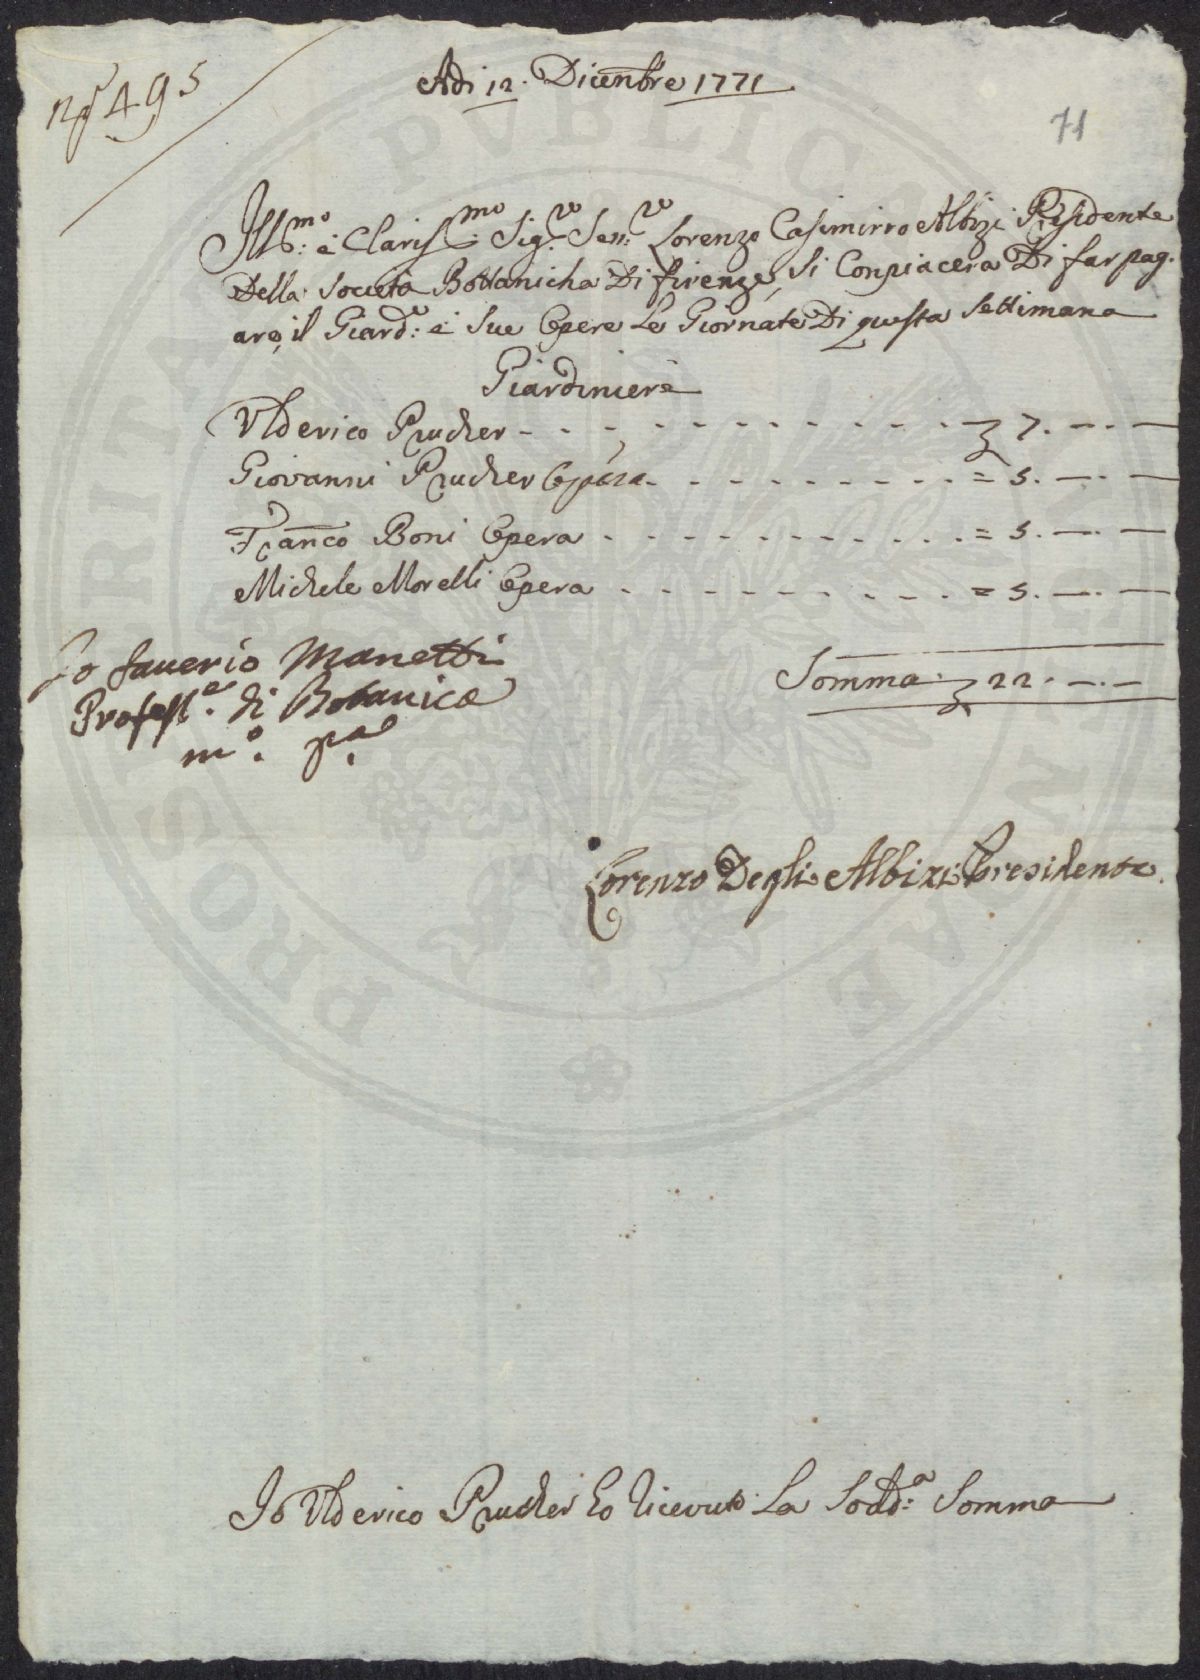 N.º 495
Adi 12. Dicenbre 1771
71
Ill.mo e Clariss.mo Sig.re Sen.re Lorenzo Casimirro Albizi Presidente
Della Società Bottanicha Di firenze, Si Conpiacera Di far pag.
are, il Giard.e e Sue Opere Le Giornate Di questa Settimana
Giardiniere
Ulderico Prucher - - - - - - - - - - 7. — . —
Giovanni Prucher Opera - - - - - - - - = 5. — . —
Fran.co Boni Opera - - - - - - - - - = 5. — . —
Michele Morelli Opera - - - - - - - - = 5. — . —
Somma 22. — . —
Io Saverio Manetti
Profess.e di Botanica
m.o p.a
Lorenzo Degli Albizi Presidente.
Io Ulderico Prucher ho Ricevuto La Sodd.a Somma
PROSPERITATI PUBLICAE AUGENDAE